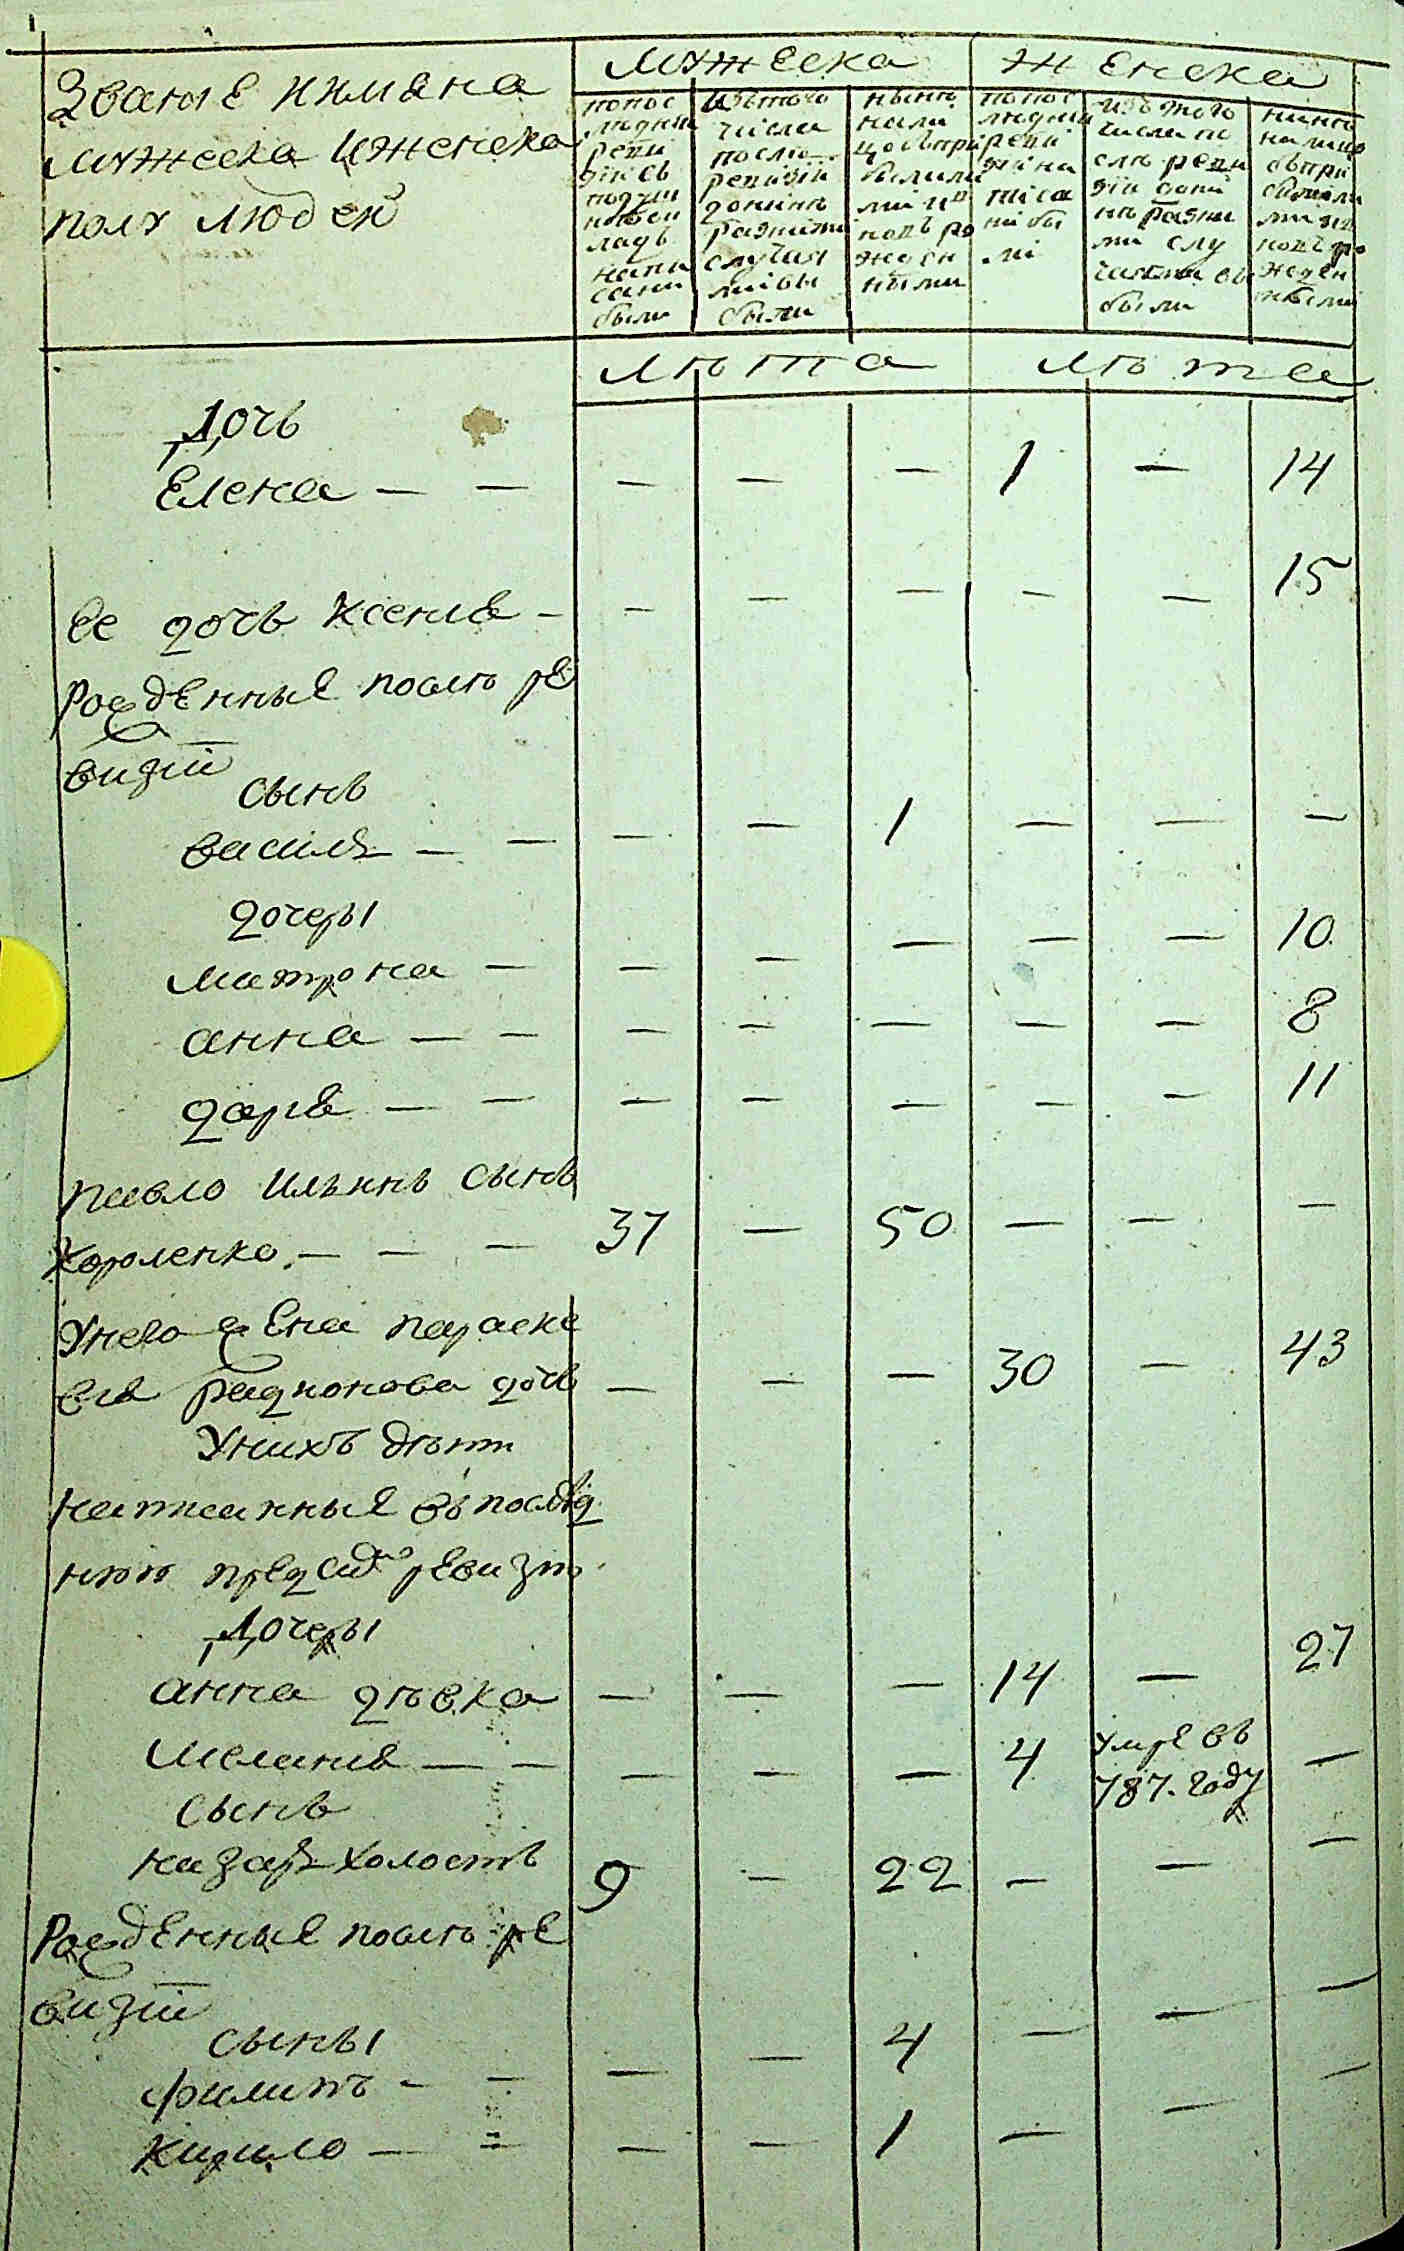 Звание имяна
мужеска и женска
полу людей
мужеска
женска
по пос
ледней
реви
зіи въ
подуш
ной ок
ладъ
напи
сани
были
изъ того
числа
после
ревизіи
донинѣ
разними
случая
ми вы
были
нынѣ
нали
цо съ при
былими
ми и в
новь ро
жден
ными
по пос
ледней
реви
зіи на
писа
ни бы
ли
изъ того
числа по
слѣ реви
зіи дони
нѣ разни
ми слу
чаями вы
были
нинѣ
на лицо
съ при
былими
ми и в
новь ро
жден
ными
лѣта
лѣта
Дочь
Елена — — — — — 1 — 14
Ее дочь Ксения — — — — — — 15
Рожденные послѣ ре
визіи
сынъ
василь — — — — 1 — — —
дочеры
матрона — — — — — — 10
анна — — — — — — — 8
дарья — — — — — — — 11
павло ильинъ сынъ
Короленко. — — — 37 — 50 — — —
У него жена параске
вия радионова дочь — — — 30 — 43
У нихъ дѣти
написанные въ послѣд
нюю пред сим ревизію
Дочеры
анна дѣвка — — — 14 — 27
мелания — — — — — 4 умре въ
787. году —
сынъ
назаръ холостъ 9 — 22 — — —
Рожденные послѣ ре
визіи
сыны
филипъ — — — — 4 — — —
Кирило — — — — 1 — — —